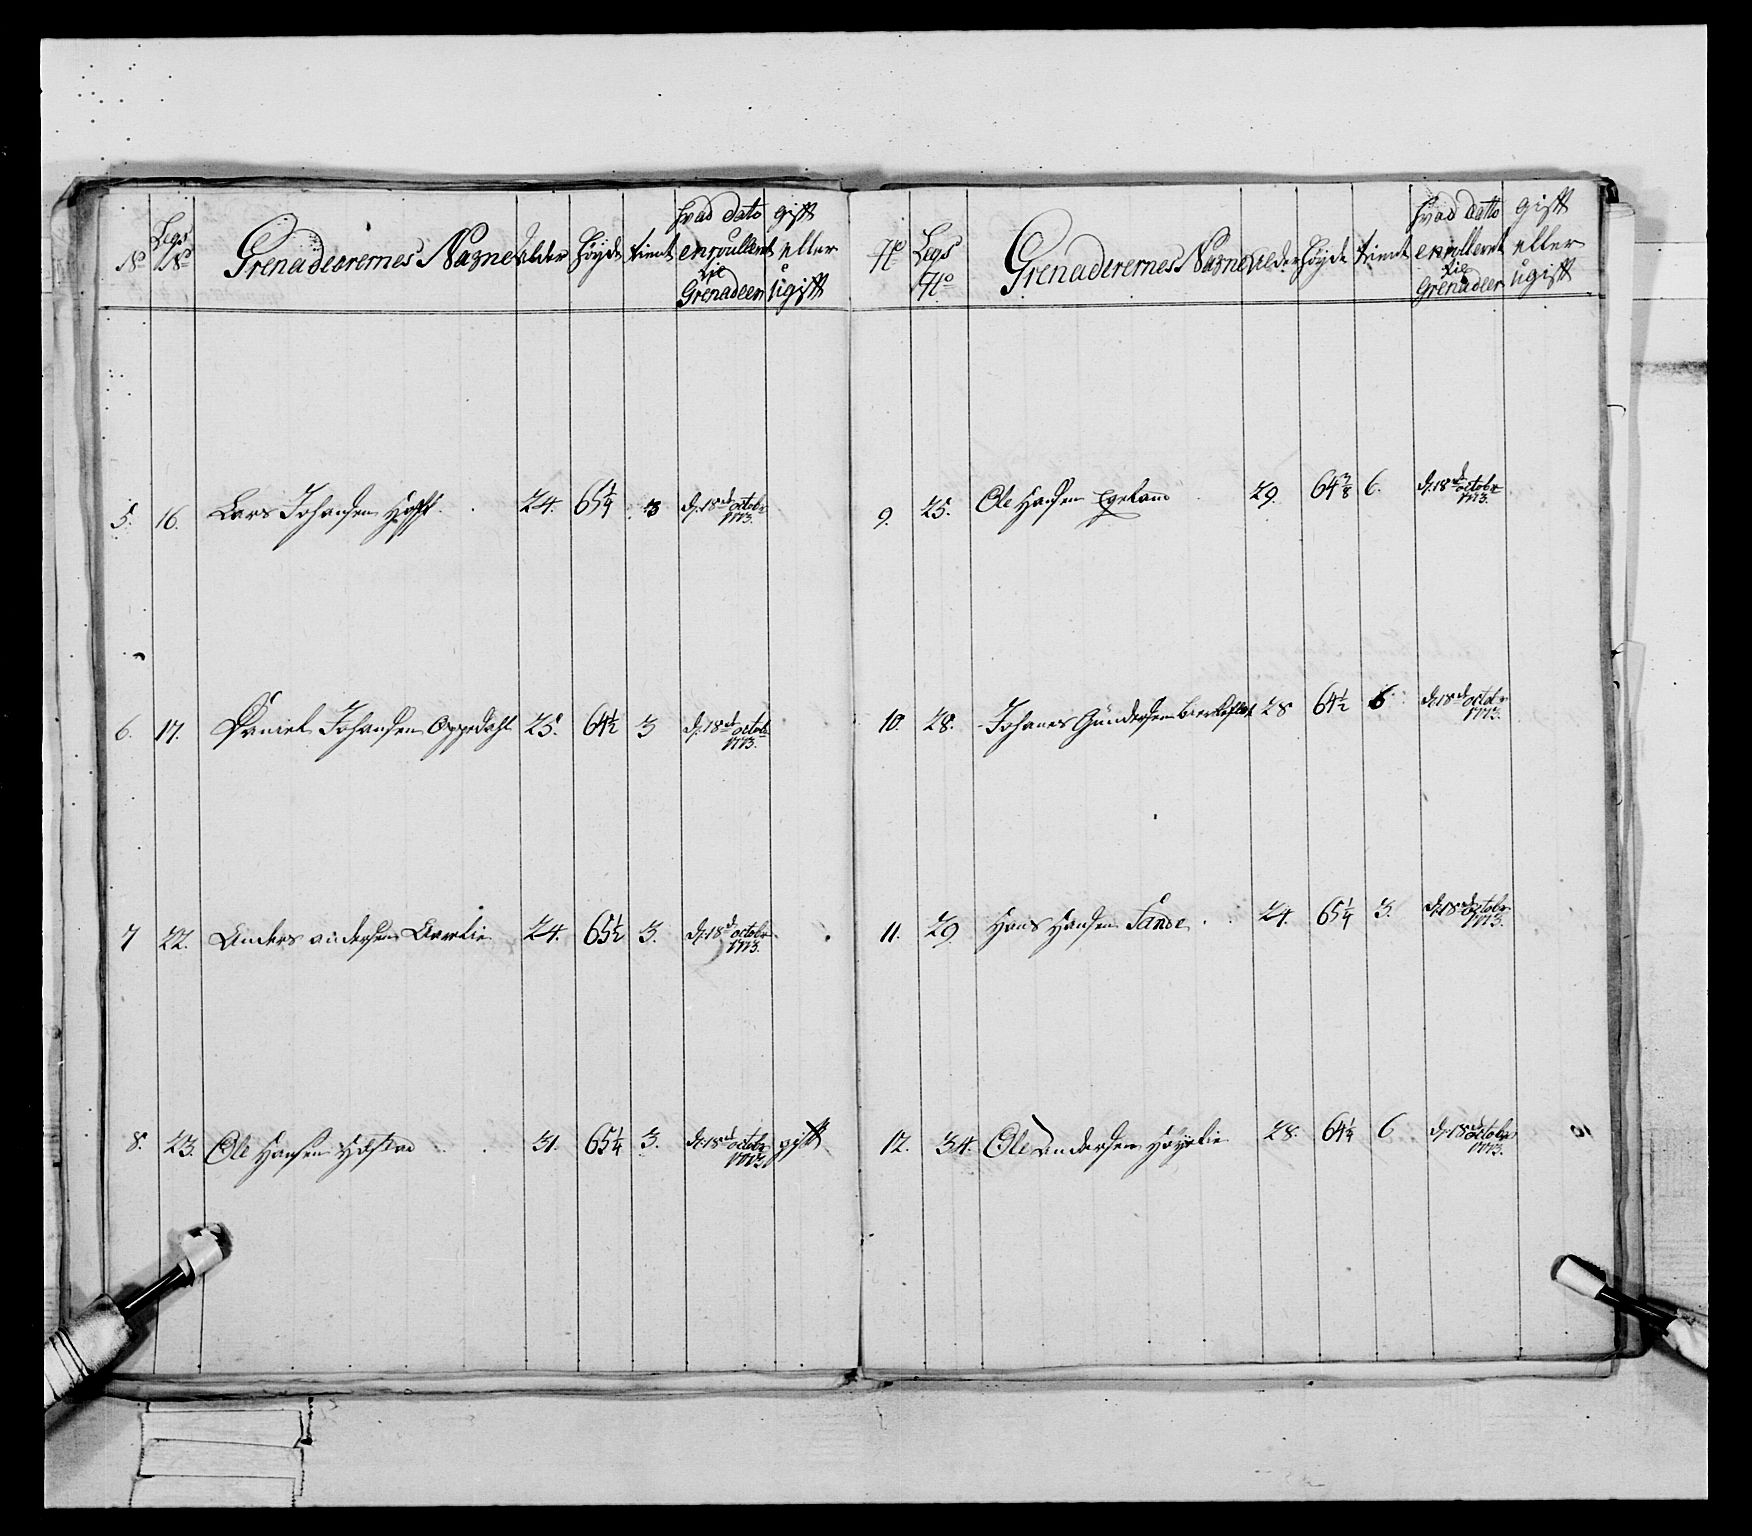 No Legs No Grenadeerernes Nafne alder høyde tient hvad dato enroullert til Grenadeer gift eller ugift
5. 16. Lars Johansen 24. 65 1/4 3 d. 18de octobr 1773.
6. 17. Daniel Johansen Oppedahl 25. 64 1/2 3 d. 18de octobr 1773.
7 22. Anders andersen 24. 65 1/2 3. d. 18de octobr 1773.
8. 23. Ole Hansen 31. 65 1/4 3. d. 18de octobr 1773. gift
No Legs No Grenaderernes Nafne alder høyde tient hvad datto enrolleret til Grenadeer gift eller ugift
9. 25. Ole Hansen 29. 64 3/8 6. d. 18de octobr 1773.
10. 28. Johanes Gundersen 28 64 1/2 6 d. 18de octobr 1773.
11. 29 Hans Hansen Sande 24. 65 1/4 3. d. 18de octobr 1773.
12. 34. Ole andersen 28. 64 1/4 6 d. 18de octobr 1773.